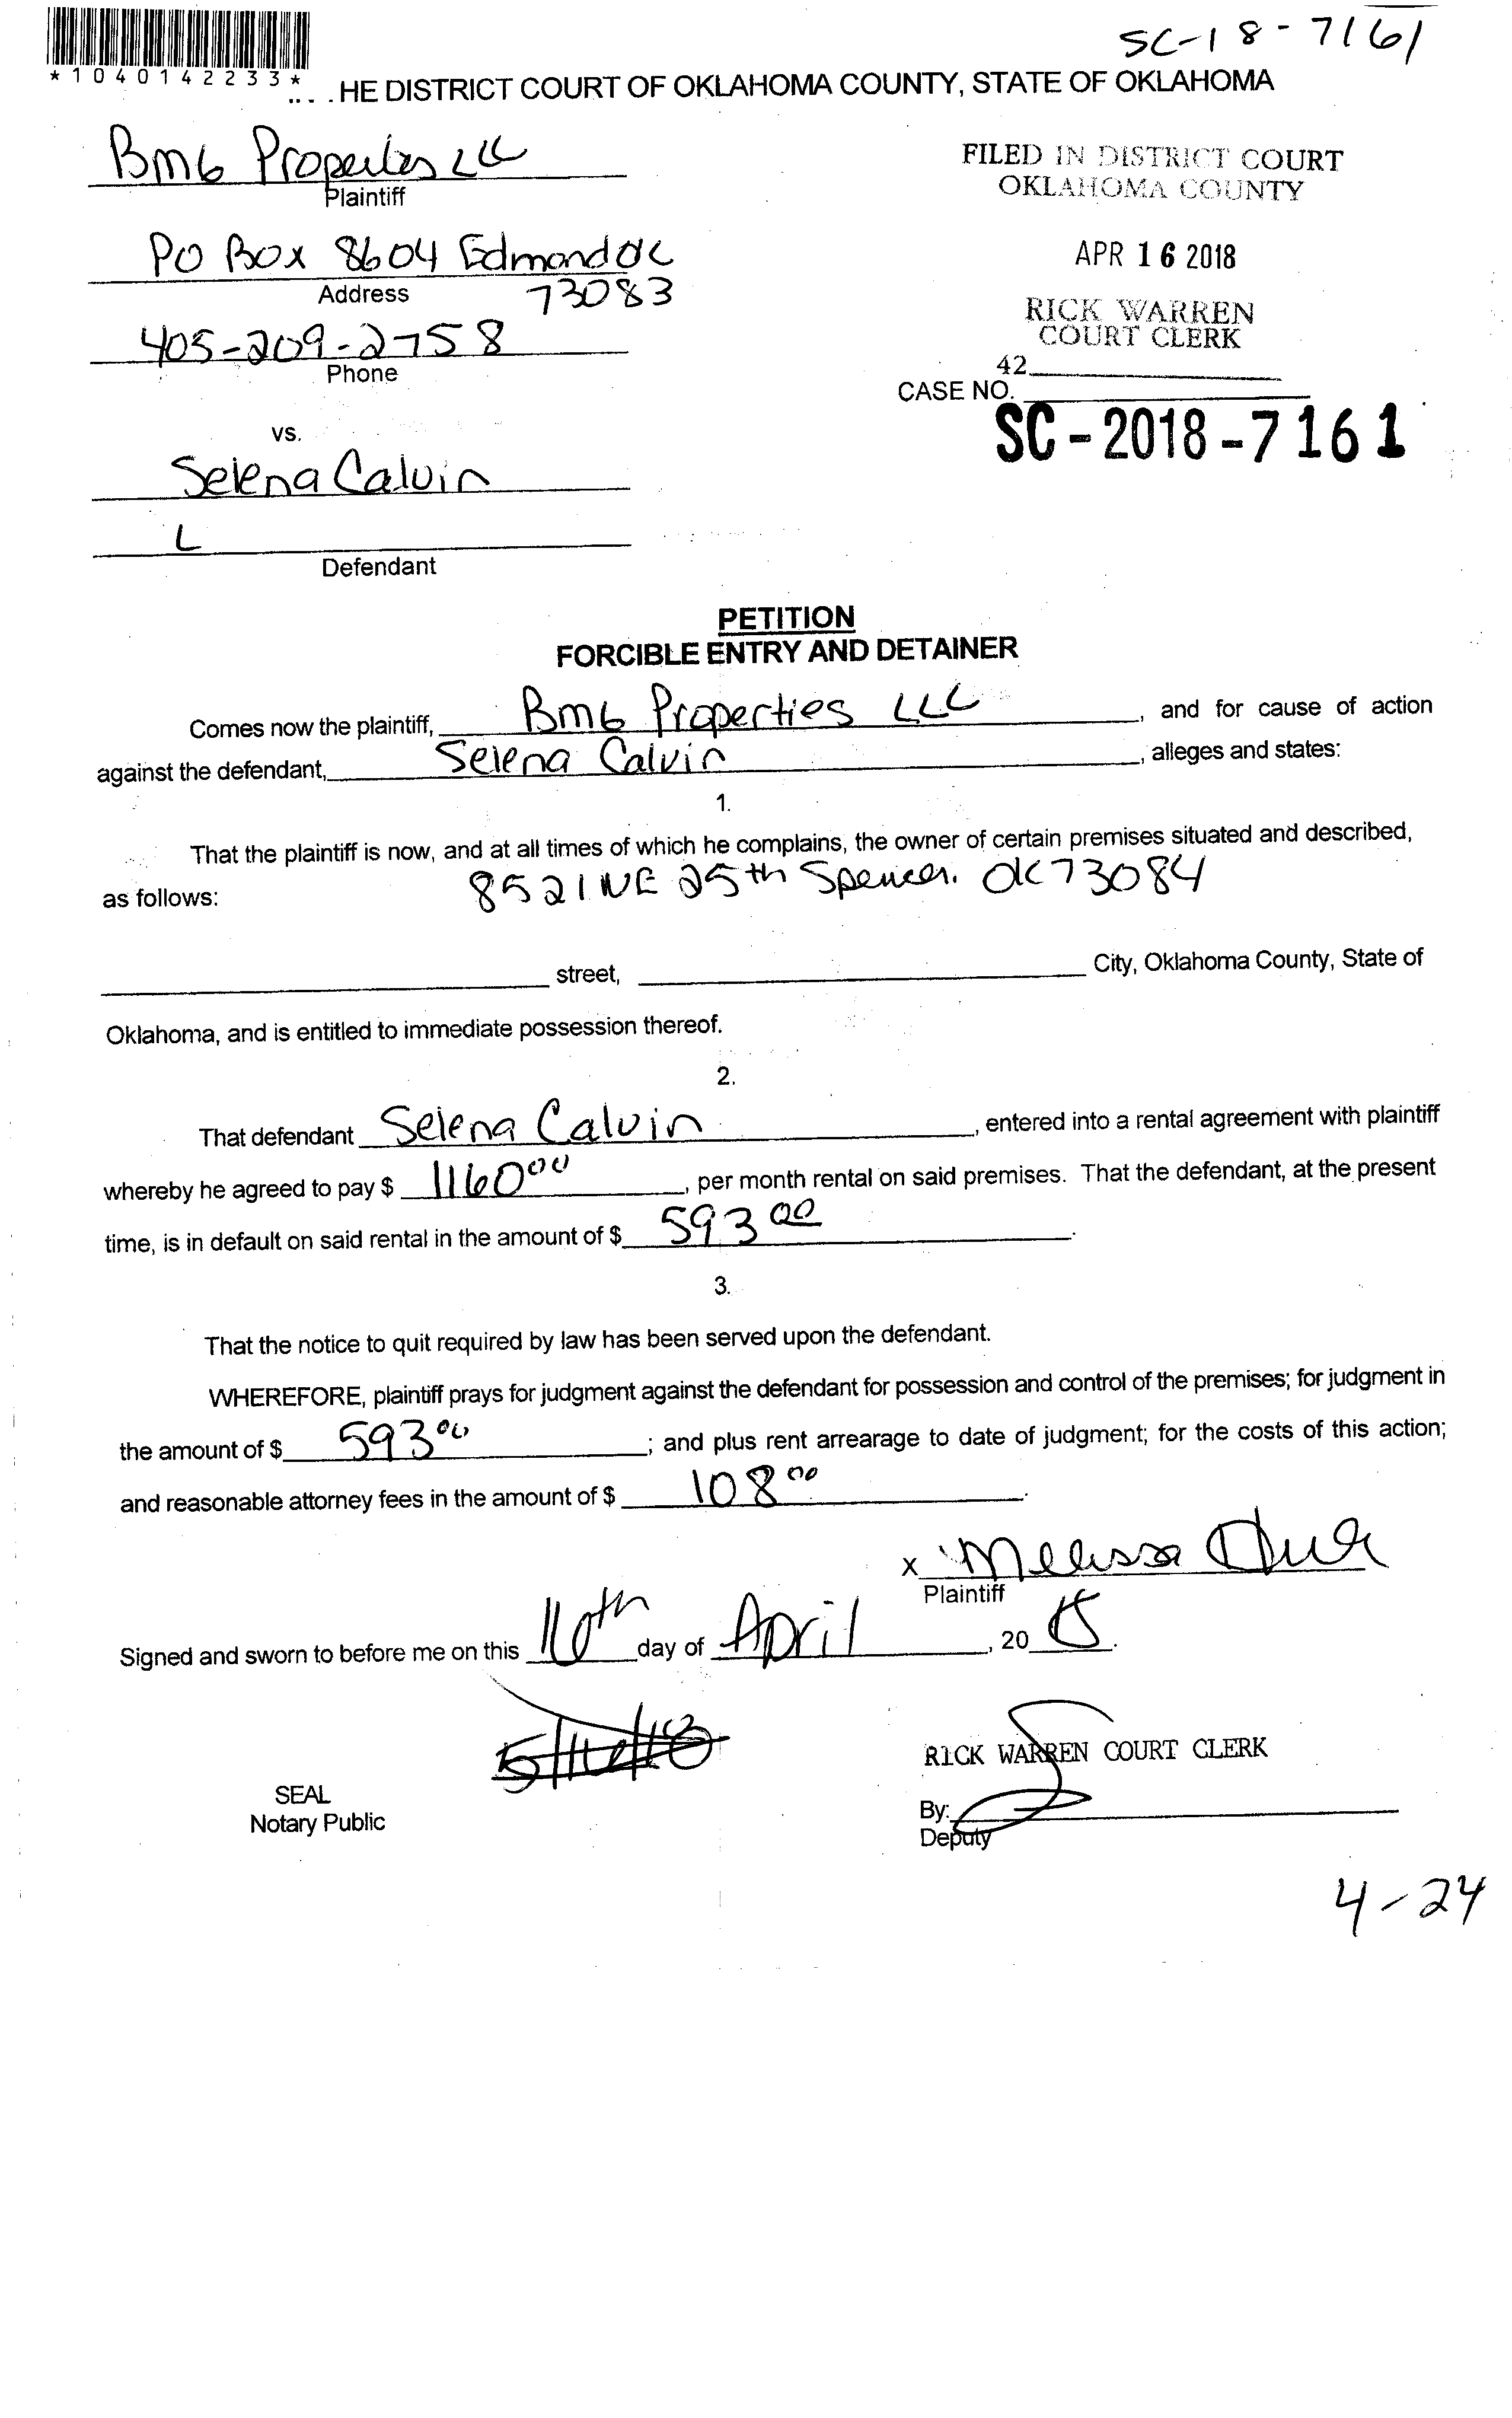 SC-18-7161
*1040142233*
HE DISTRICT COURT OF OKLAHOMA COUNTY, STATE OF OKLAHOMA
Bm6 Properties LLC
Plaintiff
FILED IN DISTRICT COURT
OKLAHOMA COUNTY
PO Box 8604 Edmond OK
Address 73083
APR 16 2018
405-209-2758
Phone
RICK WARREN
COURT CLERK
42
CASE NO.
SC-2018-7161
vs.
Selena Calvin
L
Defendant
PETITION
FORCIBLE ENTRY AND DETAINER
Comes now the plaintiff, Bm6 Properties LLC, and for cause of action
against the defendant, Selena Calvin, alleges and states:
1.
That the plaintiff is now, and at all times of which he complains, the owner of certain premises situated and described,
as follows: 8521 NE 25th Spencer. OK 73084
street, City, Oklahoma County, State of
Oklahoma, and is entitled to immediate possession thereof.
2.
That defendant Selena Calvin, entered into a rental agreement with plaintiff
whereby he agreed to pay $ 1160 00, per month rental on said premises. That the defendant, at the present
time, is in default on said rental in the amount of $ 593 00.
3.
That the notice to quit required by law has been served upon the defendant.
WHEREFORE, plaintiff prays for judgment against the defendant for possession and control of the premises; for judgment in
the amount of $ 593 00; and plus rent arrearage to date of judgment; for the costs of this action;
and reasonable attorney fees in the amount of $ 108 00.
x Melissa
Plaintiff
Signed and sworn to before me on this 16th day of April, 20 18.
RICK WARREN COURT CLERK
SEAL
Notary Public
By:
Deputy
4-24